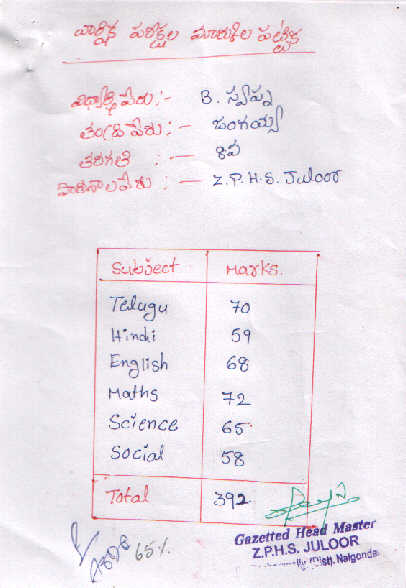 వార్షిక పరీక్షల మార్కుల పట్టిక
విద్యార్థి పేరు:- B. స్వప్న
తండ్రి పేరు:- జంగయ్య
తరగతి :- 8వ
పాఠశాల పేరు:- Z.P.H.S. Juloor
Subject Marks.
Telugu 70
Hindi 59
English 68
Maths 72
Science 65
Social 58
Total 392
65%
Gazetted Head Master
Z.P.H.S. JULOOR
Nalgonda